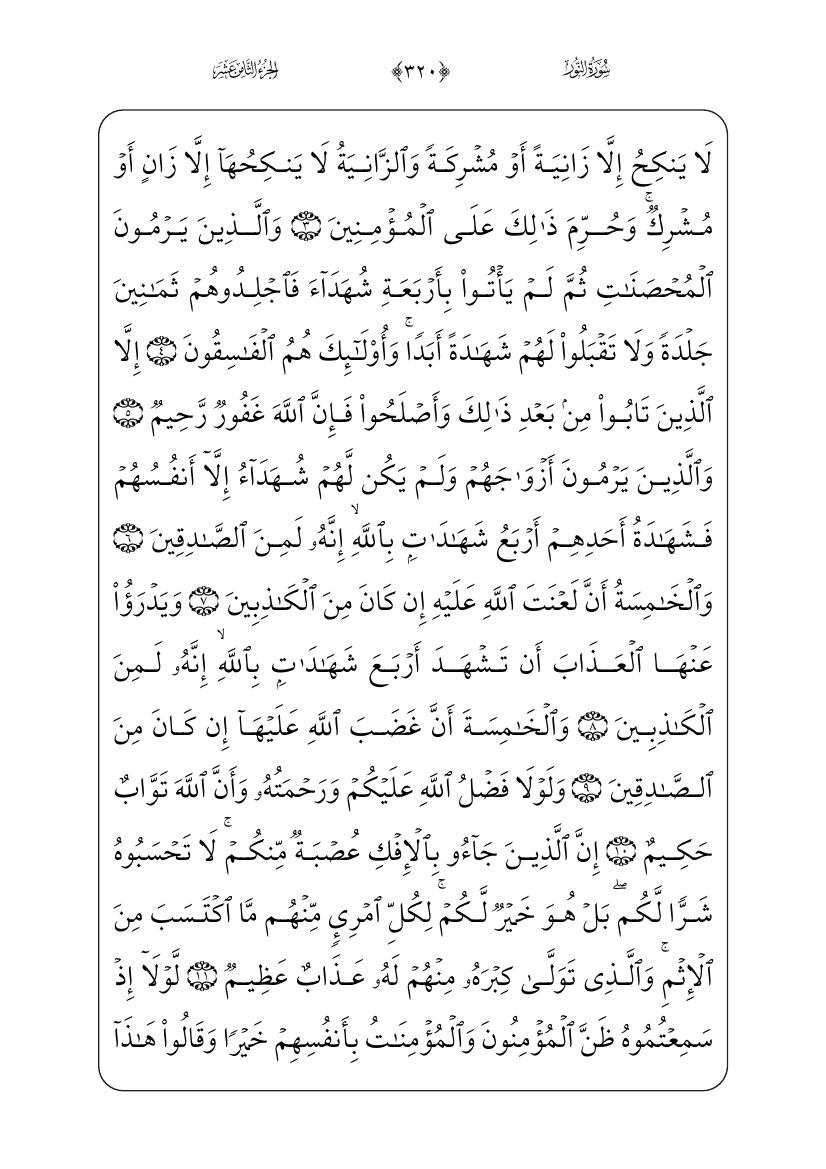 سُورَةُ النُّور ﴿٣٢٠﴾ الجُزءُ الثَّامِنَ عَشَرَ
لَا يَنكِحُ إِلَّا زَانِيَةً أَوۡ مُشۡرِكَةً وَٱلزَّانِيَةُ لَا يَنكِحُهَآ إِلَّا زَانٍ أَوۡ
مُشۡرِكٌۚ وَحُرِّمَ ذَٰلِكَ عَلَى ٱلۡمُؤۡمِنِينَ ٣ وَٱلَّذِينَ يَرۡمُونَ
ٱلۡمُحۡصَنَٰتِ ثُمَّ لَمۡ يَأۡتُواْ بِأَرۡبَعَةِ شُهَدَآءَ فَٱجۡلِدُوهُمۡ ثَمَٰنِينَ
جَلۡدَةً وَلَا تَقۡبَلُواْ لَهُمۡ شَهَٰدَةً أَبَدًاۚ وَأُوْلَٰٓئِكَ هُمُ ٱلۡفَٰسِقُونَ ٤ إِلَّا
ٱلَّذِينَ تَابُواْ مِنۢ بَعۡدِ ذَٰلِكَ وَأَصۡلَحُواْ فَإِنَّ ٱللَّهَ غَفُورٌ رَّحِيمٌ ٥
وَٱلَّذِينَ يَرۡمُونَ أَزۡوَٰجَهُمۡ وَلَمۡ يَكُن لَّهُمۡ شُهَدَآءُ إِلَّآ أَنفُسُهُمۡ
فَشَهَٰدَةُ أَحَدِهِمۡ أَرۡبَعُ شَهَٰدَٰتِۭ بِٱللَّهِۙ إِنَّهُۥ لَمِنَ ٱلصَّٰدِقِينَ ٦
وَٱلۡخَٰمِسَةُ أَنَّ لَعۡنَتَ ٱللَّهِ عَلَيۡهِ إِن كَانَ مِنَ ٱلۡكَٰذِبِينَ ٧ وَيَدۡرَؤُاْ
عَنۡهَا ٱلۡعَذَابَ أَن تَشۡهَدَ أَرۡبَعَ شَهَٰدَٰتِۭ بِٱللَّهِۙ إِنَّهُۥ لَمِنَ
ٱلۡكَٰذِبِينَ ٨ وَٱلۡخَٰمِسَةَ أَنَّ غَضَبَ ٱللَّهِ عَلَيۡهَآ إِن كَانَ مِنَ
ٱلصَّٰدِقِينَ ٩ وَلَوۡلَا فَضۡلُ ٱللَّهِ عَلَيۡكُمۡ وَرَحۡمَتُهُۥ وَأَنَّ ٱللَّهَ تَوَّابٌ
حَكِيمٌ ١٠ إِنَّ ٱلَّذِينَ جَآءُو بِٱلۡإِفۡكِ عُصۡبَةٌ مِّنكُمۡۚ لَا تَحۡسَبُوهُ
شَرًّا لَّكُمۖ بَلۡ هُوَ خَيۡرٌ لَّكُمۡۚ لِكُلِّ ٱمۡرِيٕٖ مِّنۡهُم مَّا ٱكۡتَسَبَ مِنَ
ٱلۡإِثۡمِۚ وَٱلَّذِى تَوَلَّىٰ كِبۡرَهُۥ مِنۡهُمۡ لَهُۥ عَذَابٌ عَظِيمٌ ١١ لَّوۡلَآ إِذۡ
سَمِعۡتُمُوهُ ظَنَّ ٱلۡمُؤۡمِنُونَ وَٱلۡمُؤۡمِنَٰتُ بِأَنفُسِهِمۡ خَيۡرًا وَقَالُواْ هَٰذَآ